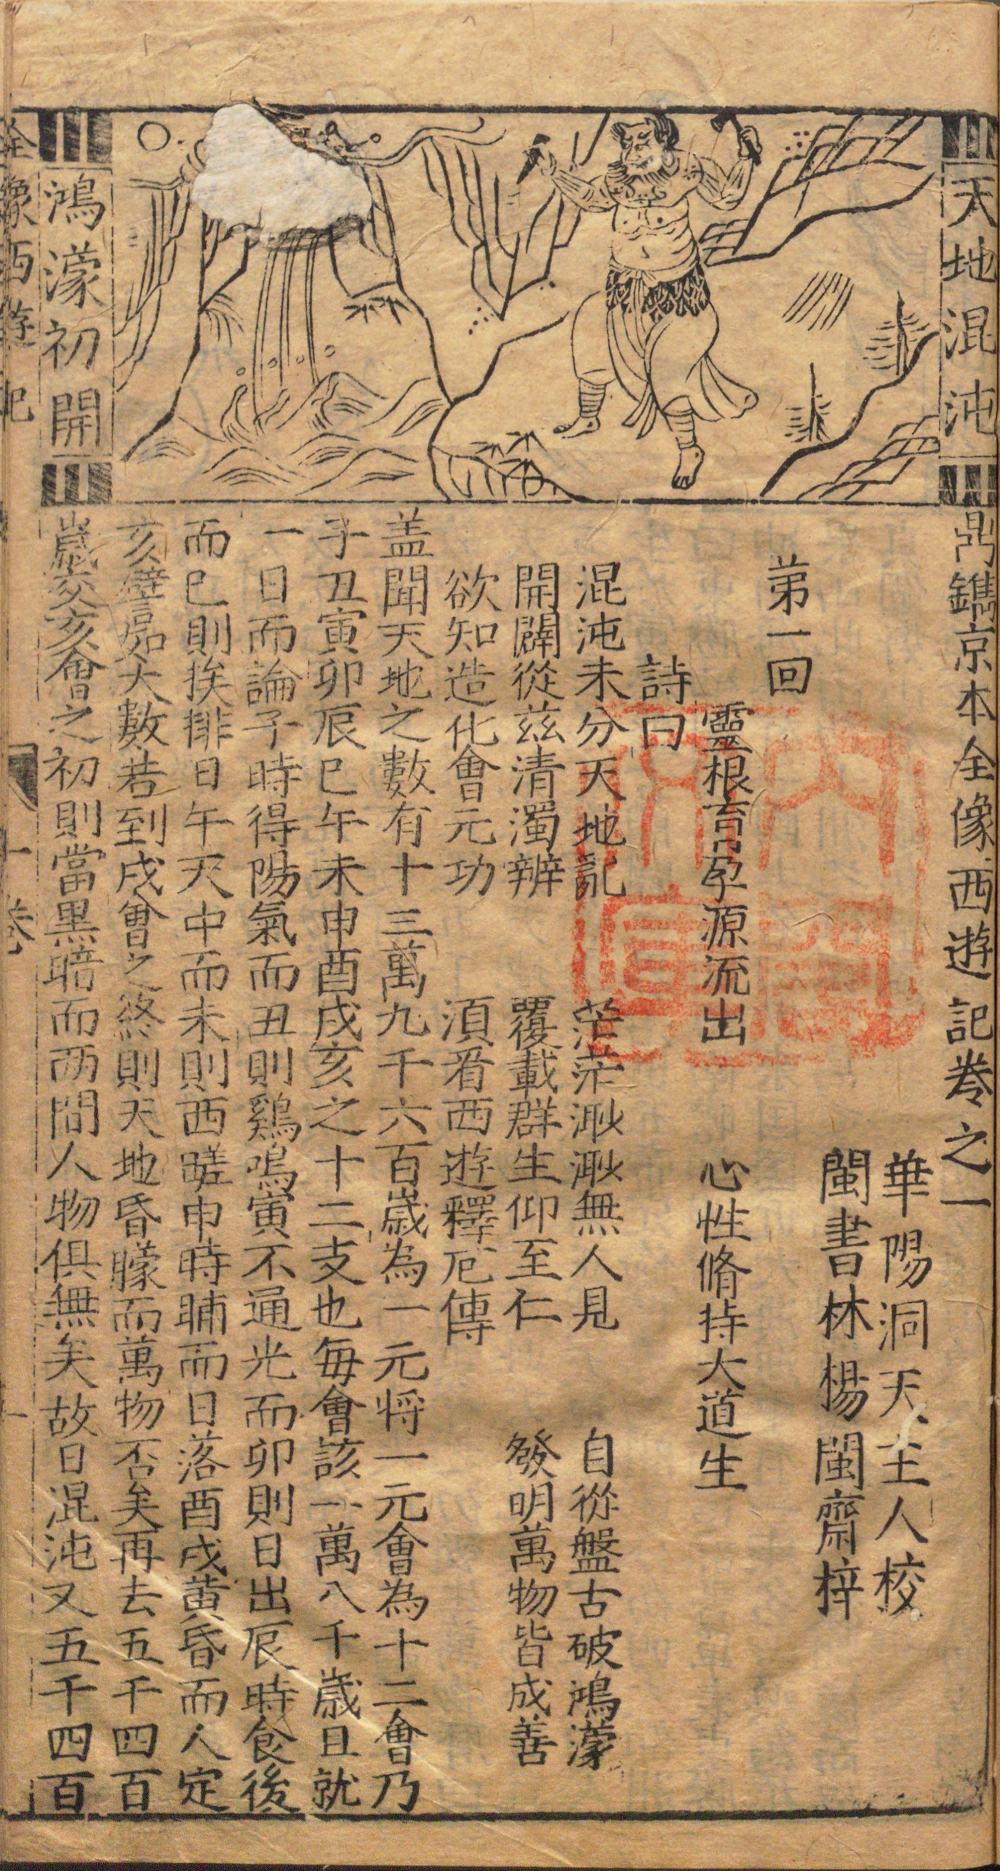 天地混沌
鴻濛初開
鼎鐫京本全像西遊記卷之一
華陽洞天主人校
閩書林楊閩齋梓
第一回
靈根育孕源流出　心性脩持大道生
詩曰
混沌未分天地亂　茫茫渺渺無人見　自從盤古破鴻濛
開闢從茲清濁辨　覆載群生仰至仁　發明萬物皆成善
欲知造化會元功　湏看西遊釋厄傳
盖聞天地之數有十三萬九千六百歲為一元將一元會為十二會乃
子丑寅卯辰巳午未申酉戌亥之十二支也每會該一萬八千歲且就
一日而論子時得陽氣而丑則鷄鳴寅不通光而卯則日出辰時食後
而巳則挨排日午天中而未則西蹉申時晡而日落酉戌黄昏而人定
亥譬如大數若到戌會之終則天地昏朦而萬物否矣再去五千四百
歲交亥會之初則當黑暗而两間人物俱無矣故曰混沌又五千四百
全像西遊記
一卷